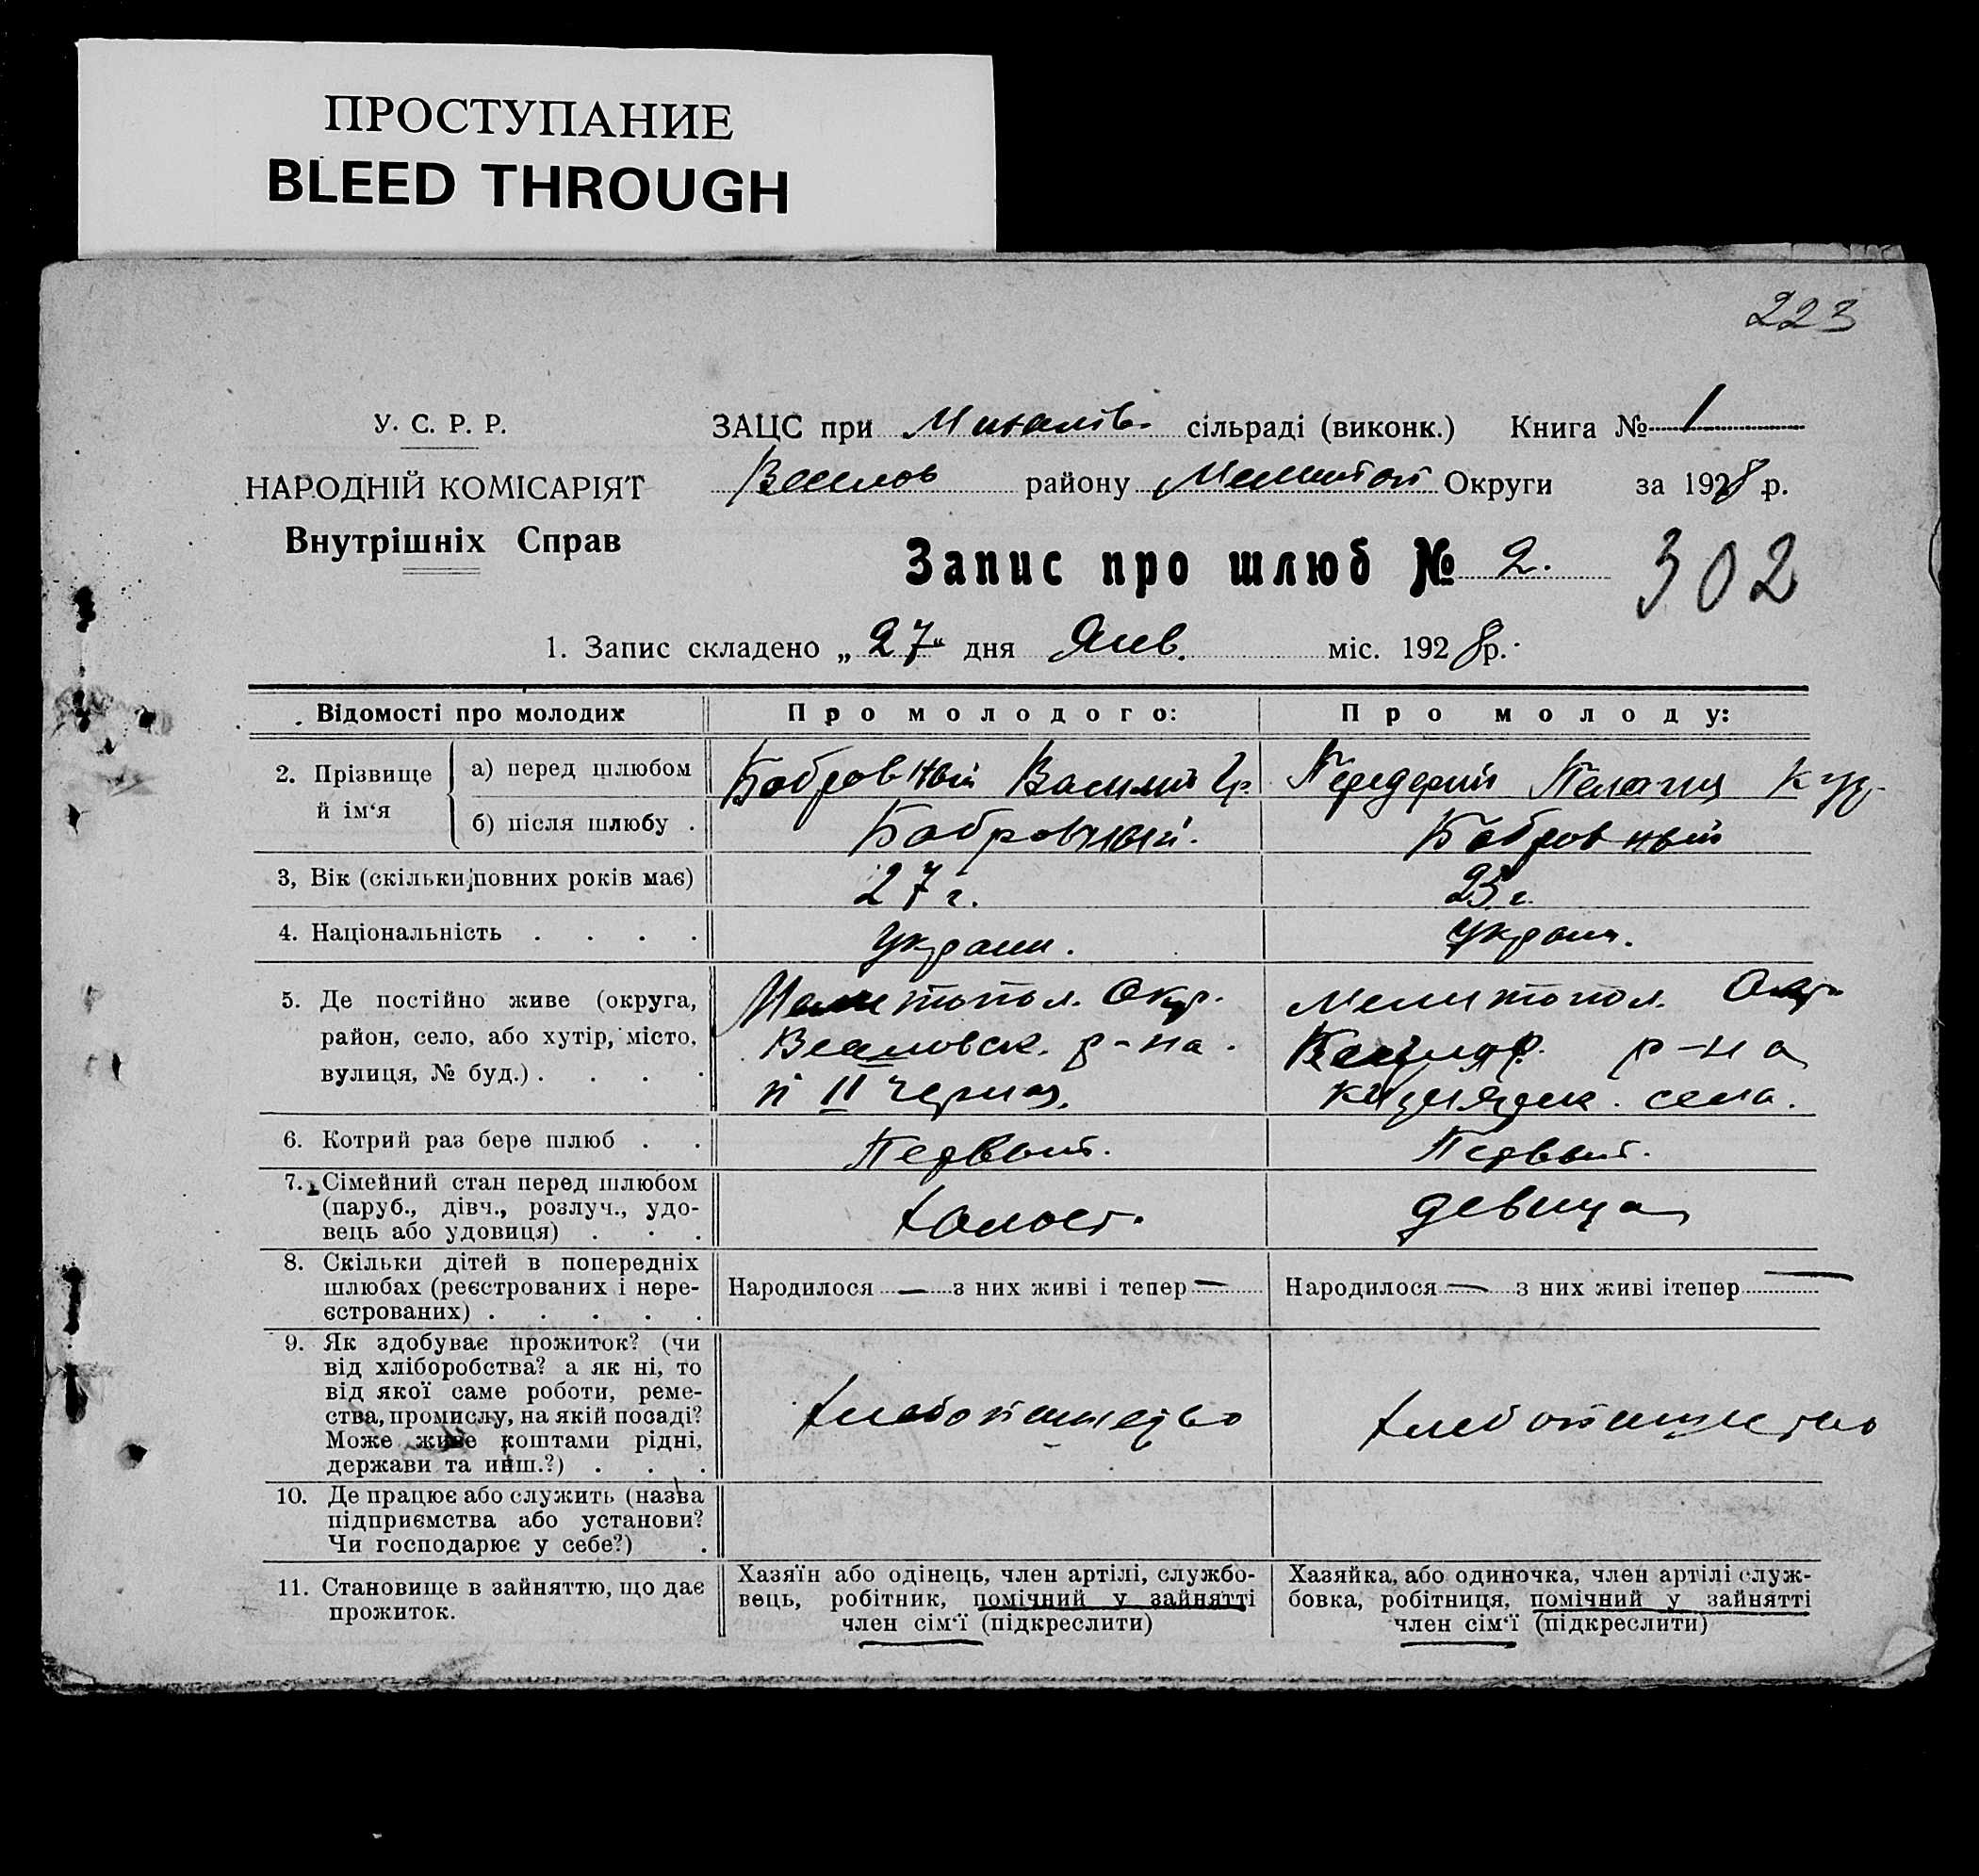 ПРОСТУПАНИЕ
BLEED THROUGH
223
У. С. Р. Р.
НАРОДНІЙ КОМІСАРІЯТ
Внутрішніх Справ
ЗАЦС при сільраді (виконк.) Книга № 1
Веселов району Мелитоп Округи за 1928 р.
Запис про шлюб № 2. 302
1. Запис складено „27“ дня Янв. міс. 1928 р.
Відомості про молодих
Про молодого:
Про молоду:
2. Прізвище й ім‘я
а) перед шлюбом
Бобровный Василий Гр.
Передерий Пелагия
б) після шлюбу .
Бобровный.
Бобровный
3, Вік (скільки повних років має)
27 г.
25 г.
4. Національність . . . .
Украин.
Украин.
5. Де постійно живе (округа,
район, село, або хутір, місто,
вулиця, № буд.) . . . .
Мелитопол. Окр.
Веселовск. р-на.
п II
Мелитопол. Окр
р-на
села.
6. Котрий раз бере шлюб . .
Первый.
Первый.
7. Сімейний стан перед шлюбом
(паруб., дівч., розлуч., удо-
вець або удовиця) . . .
холост.
девица
8. Скільки дітей в попередніх
шлюбах (реєстрованих і нере-
єстрованих) . . . . .
Народилося — з них живі і тепер —
Народилося — з них живі ітепер —
9. Як здобуває прожиток? (чи
від хліборобства? а як ні, то
від якої саме роботи, реме-
ства, промислу, на якій посаді?
Може живе коштами рідні,
держави та инш.?) . . .
хлебопашество
хлебопашество
10. Де працює або служить (назва
підприємства або установи?
Чи господарює у себе?) .
11. Становище в зайняттю, що дає
прожиток.
Хазяїн або одінець, член артілі, службо-
вець, робітник, помічний у зайнятті
член сім‘ї (підкреслити)
Хазяйка, або одиночка, член артілі служ-
бовка, робітниця, помічний у зайнятті
член сім‘ї (підкреслити)